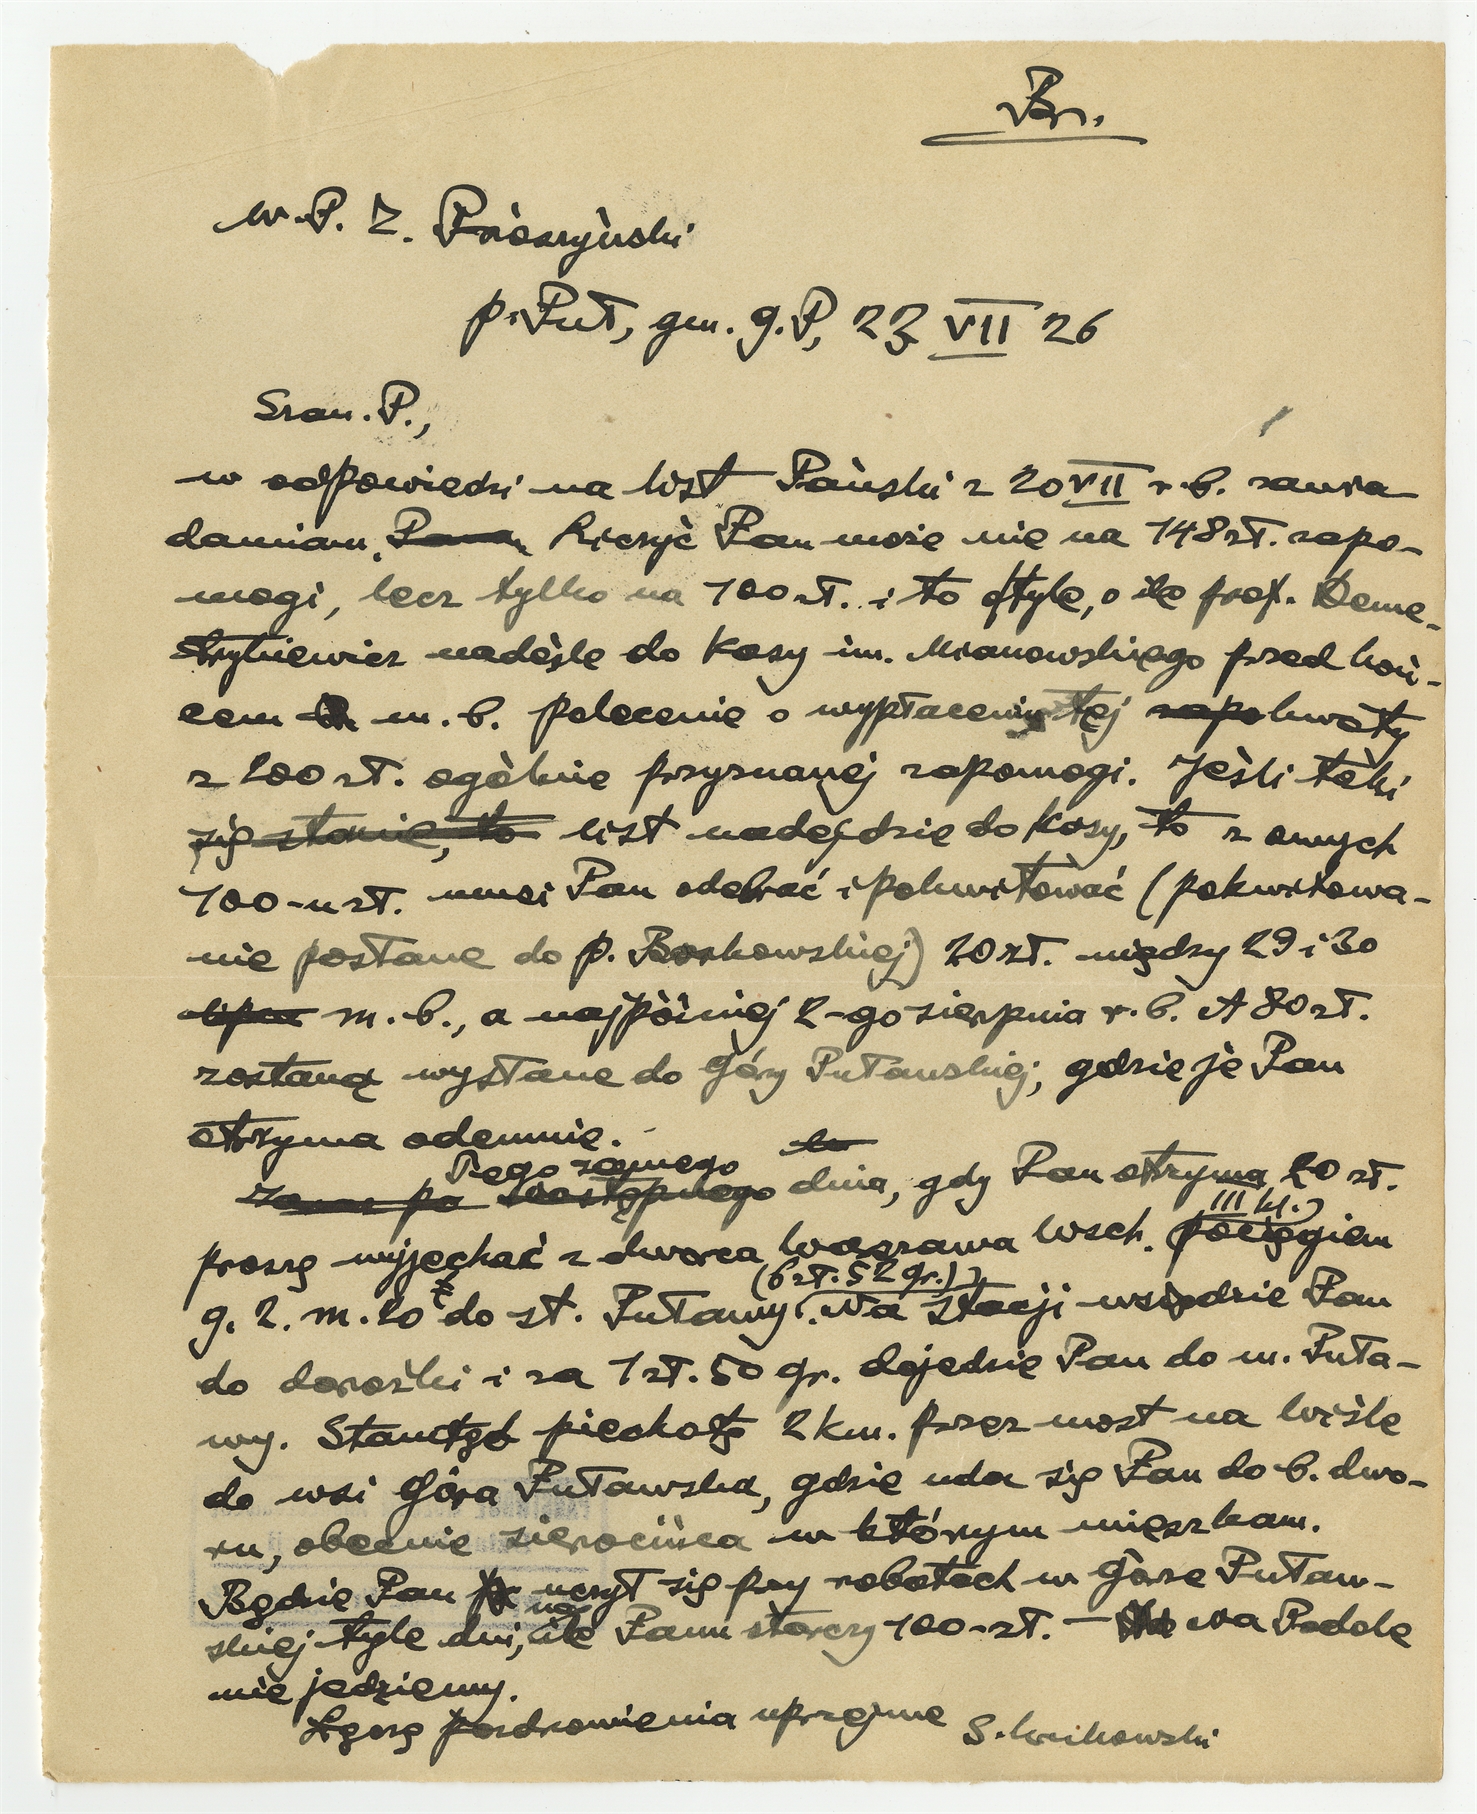 Br.
W.P. Z. Prószyński
p. Puł, gm. G.P, 23 VII 26
Szan. P.,
w odpowiedzi na list Pański z 20 VII r.b. zawia
damiam, Pana, liczyć Pan może nie na 148 zł. zapo-
mogi, lecz tylko na 100 zł. i to o tyle, o ile prof. Deme-
trykiewicz nadeśle do Kasy im. Mianowskiego przed koń-
cem m.b. polecenie o wypłaceniu tej kwoty
z 200 zł. ogólnie przyznanej zapomogi. Jeśli taki
się stanie, to list nadejdzie do Kasy, to z owych
100-u zł. musi Pan odebrać i pokwitować (pokwitowa-
nie posłane do p. Boskowskiej) 20 zł. między 29 i 30
lipca m.b., a najpóźniej 2-go sierpnia r.b. A 80 zł.
zostaną wysłane do Góry Puławskiej, gdzie je Pan
otrzyma odemnie.
Tego samego
Zaraz po następnego dnia, gdy Pan otrzyma 20 zł.
III kl.
proszę wyjechać z dworca Warszawa Wsch. pociągiem
(6 zł. 52 gr.)
g. 2. m. 20 do st. Puławy. Na stacji wsiędzie Pan
do dorożki i za 1 zł. 50 gr. dojedzie Pan do m. Puła-
wy. Stamtąd piechotą 2 km. przez most na Wiśle
do wsi Góra Puławska, gdzie uda się Pan do b. dwo-
ru, obecnie sierocińca w którym mieszkam.
Będzie Pan uczył się przy robotach w Górze Puław-
na
skiej tyle dni, ile Panu starczy 100-zł. — Na Podole
nie jedziemy.
Łączę pozdrowienia uprzejme S. Krukowski